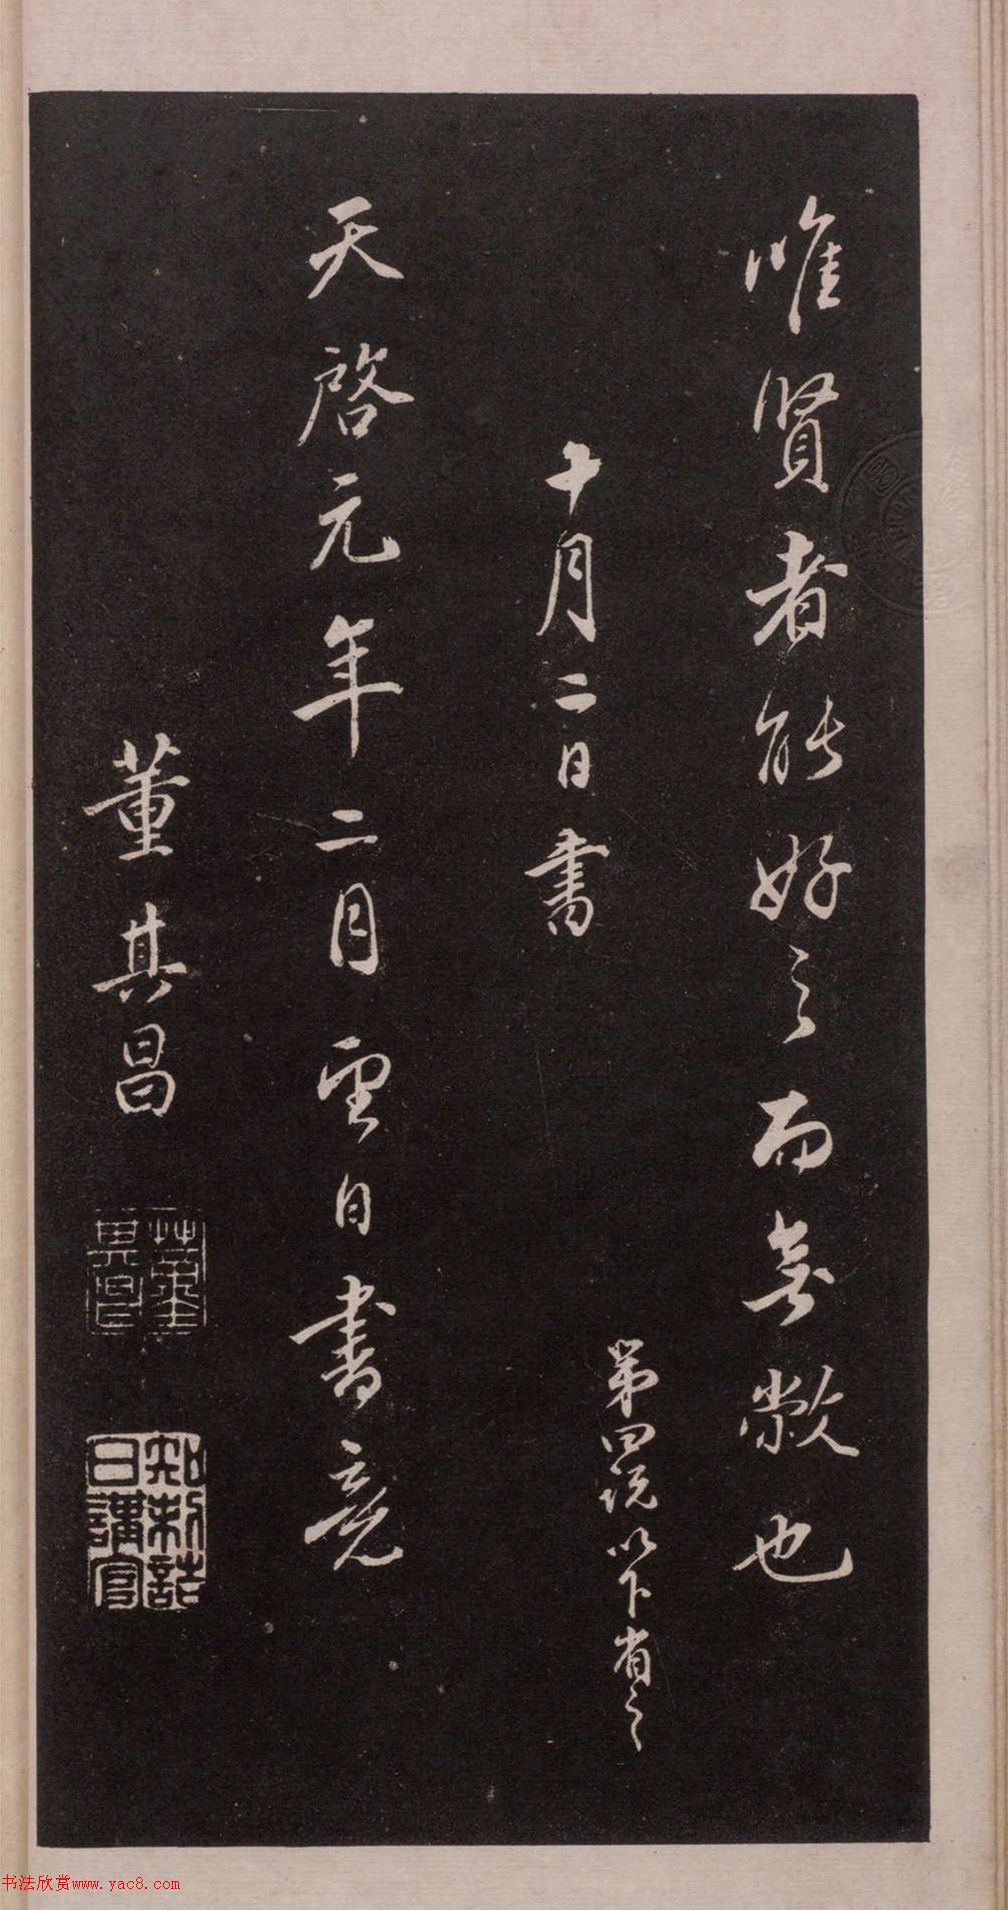 唯賢者能好之而無厭也
第四說以下省之
十月二日書
天啓元年二月望日書竟
董其昌
董其昌
知制誥日講官
书法欣赏www.yac8.com